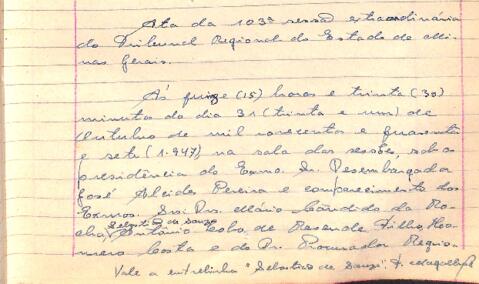 Ata da 103ª sessão extraordinária
do Tribunal Regional do Estado de Mi-
nas Gerais.
Ás quinze (15) horas e trinta (30)
minutos do dia 31 (trinta e um) de
Outubro de mil novecentos e quarenta
e sete (1.947), na sala das sessões, sob a
presidência do Exmo. Sr. Desembargador
José Alcides Pereira e comparecimento dos
Exmos. Srs. Drs. Mário Cândido da Ro-
cha, Sebastião de Souza, Antônio Lobo de Resende Filho, Ho-
mero Costa e do Dr. Procurador Regio-
Vale a entrelinha "Sebastião de Souza".